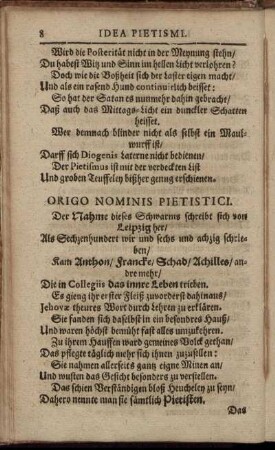 8 IDEA PIETISMI.
Wird die Posterität nicht in der Meynung stehn/
Du habest Witz und Sinn im hellen Licht verlohren?
Doch wie die Boßheit sich der Laster eigen macht/
Und als ein rasend Hund continuirlich beisset:
So hat der Satan es nunmehr dahin gebracht/
Daß auch das Mittags-Licht ein duncfler Schatten
heisset.
Wer demnach blinder nicht als selbst ein Maul-
wurff ist/
Darff sich Diogenis Laterne nicht bedienen/
Der Pietismus ist mit der verdeckten List
Und groben Teuffeley bißher genug erschienen.
ORIGO NOMINIS PIETISTICI.
Der Nahme dieses Schwarms schreibt sich von
Leipzig her/
Als Sechzenhundert wir und sechs und achzig schrie-
ben/
Kam Anthon/ Francke/ Schad/ Achilles/ an-
dre mehr/
Die in Collegiis das innre Leben trieben.
Es gieng ihr erster Fleiß zuvorderst dahinaus/
Jehovæ theures Wort durch lehren zu erklären.
Sie fanden sich daselbst in ein besonders Hauß/
Und waren höchst bemüht fast alles umzukehren.
Zu ihrem Hauffen ward gemeines Volck gethan/
Das pflegte täglich mehr sich ihnen zuzufüllen:
Sie nahmen allerseits gantz eigne Minen an/
Und wusten das Gesicht besonders zu verstellen.
Das schien Verständigen bloß Heucheley zu seyn/
Dahero nennte man sie sämtlich Pietisten.
Das